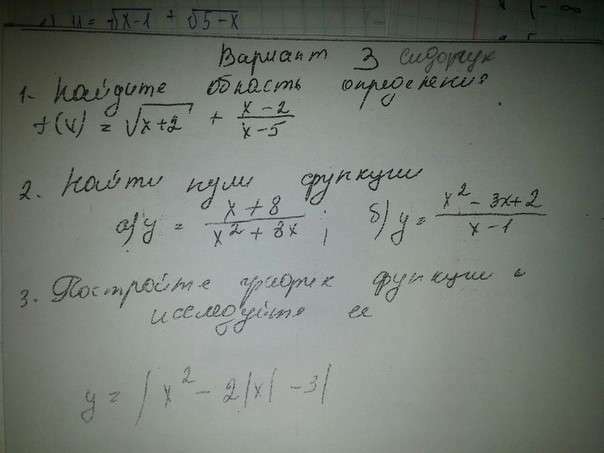 y = √x-1 + √5-x
Вариант 3 Сидорчук
1. Найдите область определения
f(x) = √x+2 + (x-2)/(x-5)
2. Найти нули функции
а) y = (x+8)/(x²+8x) ; б) y = (x²-3x+2)/(x-1)
3. Постройте график функции и
исследуйте ее
y = |x² - 2|x| - 3|